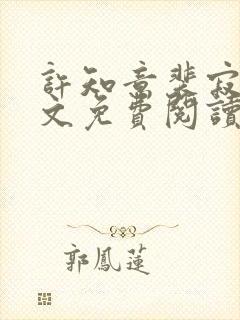 許知意裴寂
文免費閱讀
郭鳳蓮